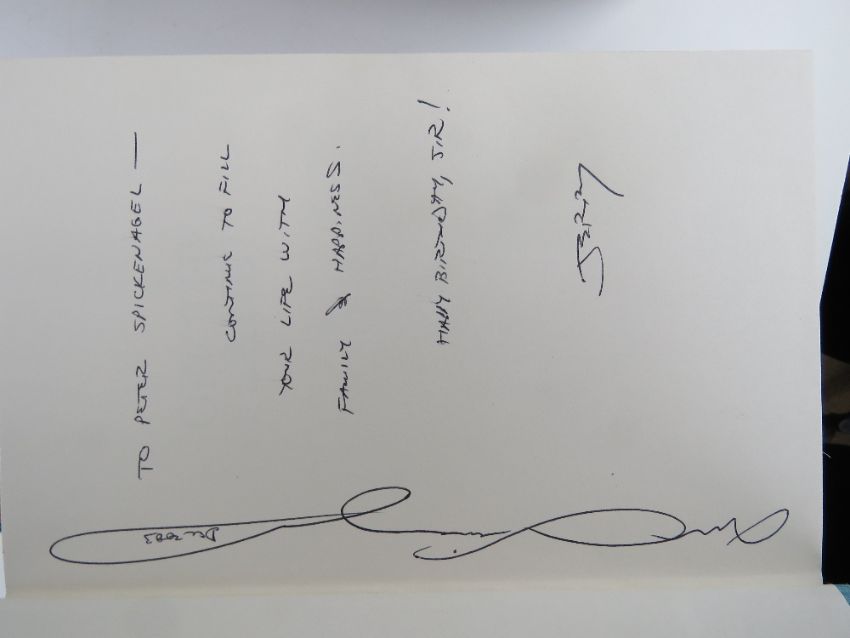 TO PETER SPICKENAGEL —
CONTINUE TO FILL
YOUR LIFE WITH
FAMILY & HAPPINESS.
HAPPY BIRTHDAY, SIR!
JERRY
Dec 2003